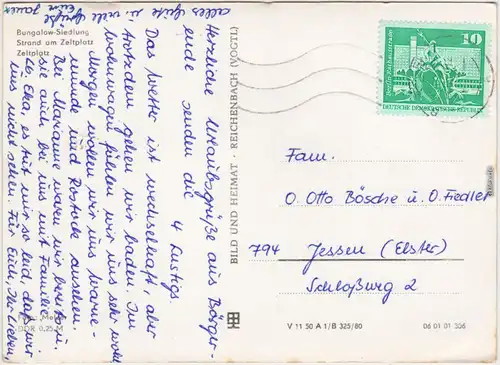 Bungalow-Siedlung
Strand am Zeltplatz
Zeltplatz
Herzliche Urlaubsgrüße aus Börger-
ende senden die 4 Lustigs.
Das Wetter ist wechselhaft, aber
trotzdem gehen wir baden. Im
Wohnwagen fühlen wir uns sehr wohl
Morgen wollen wir uns Warne-
münde und Rostock ansehen.
Bei Marianne waren wir bereits u.
sie auch bei uns mit Familie.
Lb. Elka, es tut mir so leid, daß wir
uns nicht sehen. Für Euch, Ihr Lieben,
alles Gute u. viele
Grüße
DDR 0,25 M
BILD UND HEIMAT · REICHENBACH (VOGTL)
V 11 50 A 1/B 325/80
06 01 01 306
10
Berlin, Rathausstraße
DEUTSCHE DEMOKRATISCHE REPUBLIK
Fam.
O. Otto Bösche u. O. Fiedler
794 Jessen (Elster)
Schloßweg 2